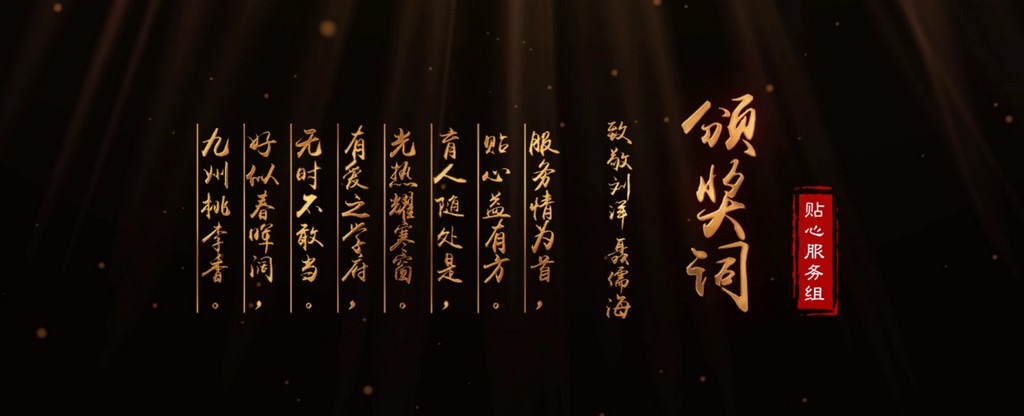 贴心服务组
颁奖词
致敬刘洋 聂儒海
服务情为首，
贴心益有方。
育人随处是，
光热耀寒窗。
有爱之学府，
无时不敢当。
好似春晖润，
九州桃李香。